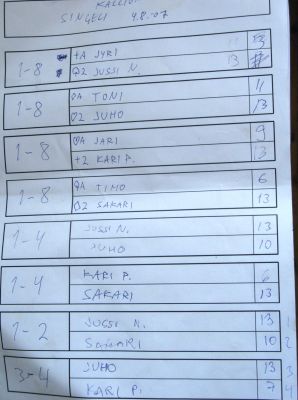 KALLIO
SINGELI 4.8.-07
1-8 +A JYRI 13
♦2 JUSSI N. 13
1-8 ♦A TONI 11
♦2 JUHO 13
1-8 ♦A JARI 9
+2 KARI P. 13
1-8 ♦A TIMO 6
♦2 SAKARI 13
1-4 JUSSI N. 13
JUHO 10
1-4 KARI P. 6
SAKARI 13
1-2 JUSSI N. 13 1
SAKARI 10 2
3-4 JUHO 13 3
KARI P. 7 4